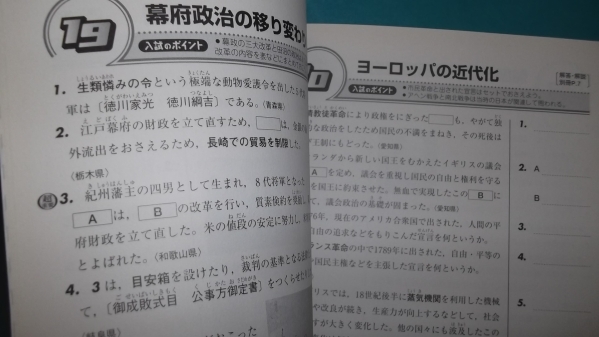 19
幕府政治の移り変わり
入試のポイント
1. 生類憐みの令という極端な動物愛護令を出した5代
軍は〔徳川家光　徳川綱吉〕である。（青森県）
2. 江戸幕府の財政を立て直すため、□は、金銀の
外流出をおさえるため、長崎での貿易を制限した。
（栃木県）
3. 紀州藩主の四男として生まれ、8代将軍となった
Aは、Bの改革を行い、質素倹約を
府財政を立て直した。米の値段の安定に努力し、
とよばれた。（和歌山県）
4. 3は、目安箱を設けたり、裁判の基準となる
て、〔御成敗式目　公事方御定書〕をつくらせた
ヨーロッパの近代化
入試のポイント
革命により政権をにぎった□も、やがて独
な政治をしたため国民の不満をまねき、その死後は
王制にもどった。（愛知県）
ランダから新しい国王をむかえたイギリスの議会
Aを定め、議会を重視し国民の自由と権利を守る
を国王に約束させた。無血で実現したこのBに
て、議会政治の基礎が固まった。（愛知県）
76年、現在のアメリカ合衆国で出された、人間の平
自由の追求などをもりこんだ宣言を何というか。
ンス革命の中で1789年に出された、自由・平等の
国民主権などを主張した宣言を何というか。
リスでは、18世紀後半に蒸気機関を利用した機械
や改良が続き、生産力が向上するなどして、社会
すが大きく変化した。他の国々にも波及したこの
1.
2. A
B
3.
4.
5.